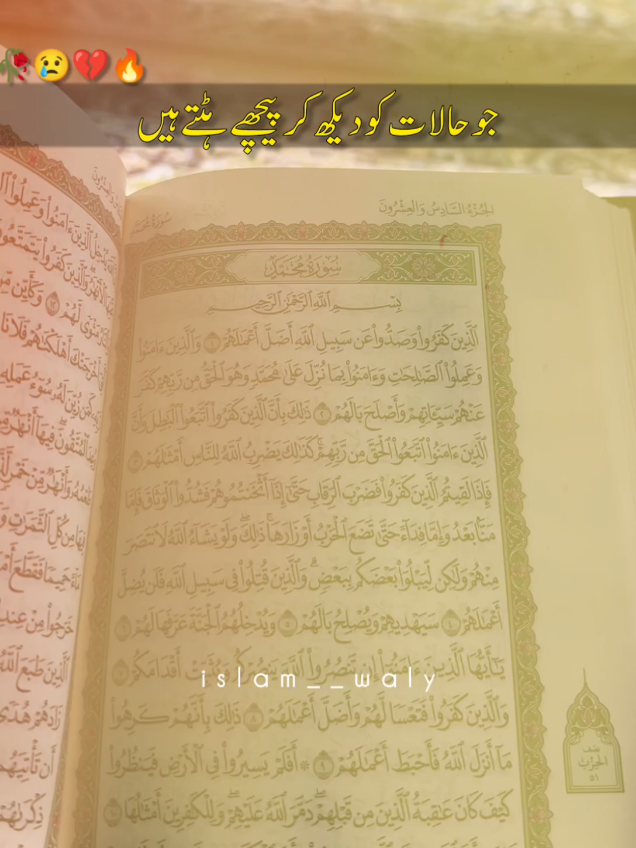 جو حالات کو دیکھ کر پیچھے ہٹتے ہیں
الجزء السادس والعشرون
سورة محمد
سُورَةُ مُحَمَّدٍ
بِسْمِ اللَّهِ الرَّحْمَٰنِ الرَّحِيمِ
الَّذِينَ كَفَرُوا وَصَدُّوا عَن سَبِيلِ اللَّهِ أَضَلَّ أَعْمَالَهُمْ ١ وَالَّذِينَ ءَامَنُوا
وَعَمِلُوا الصَّالِحَاتِ وَءَامَنُوا بِمَا نُزِّلَ عَلَىٰ مُحَمَّدٍ وَهُوَ الْحَقُّ مِن رَّبِّهِمْ كَفَّرَ
عَنْهُمْ سَيِّئَاتِهِمْ وَأَصْلَحَ بَالَهُمْ ٢ ذَٰلِكَ بِأَنَّ الَّذِينَ كَفَرُوا اتَّبَعُوا الْبَاطِلَ وَأَنَّ
الَّذِينَ ءَامَنُوا اتَّبَعُوا الْحَقَّ مِن رَّبِّهِمْ كَذَٰلِكَ يَضْرِبُ اللَّهُ لِلنَّاسِ أَمْثَالَهُمْ ٣
فَإِذَا لَقِيتُمُ الَّذِينَ كَفَرُوا فَضَرْبَ الرِّقَابِ حَتَّىٰ إِذَا أَثْخَنتُمُوهُمْ فَشُدُّوا الْوَثَاقَ فَإِمَّا
مَنًّا بَعْدُ وَإِمَّا فِدَاءً حَتَّىٰ تَضَعَ الْحَرْبُ أَوْزَارَهَا ذَٰلِكَ وَلَوْ يَشَاءُ اللَّهُ لَانتَصَرَ
مِنْهُمْ وَلَٰكِن لِّيَبْلُوَا بَعْضَكُم بِبَعْضٍ وَالَّذِينَ قُتِلُوا فِي سَبِيلِ اللَّهِ فَلَن يُضِلَّ
أَعْمَالَهُمْ ٤ سَيَهْدِيهِمْ وَيُصْلِحُ بَالَهُمْ ٥ وَيُدْخِلُهُمُ الْجَنَّةَ عَرَّفَهَا لَهُمْ ٦
يَا أَيُّهَا الَّذِينَ ءَامَنُوا إِن تَنصُرُوا اللَّهَ يَنصُرْكُمْ وَيُثَبِّتْ أَقْدَامَكُمْ ٧
islam__waly
وَالَّذِينَ كَفَرُوا فَتَعْسًا لَّهُمْ وَأَضَلَّ أَعْمَالَهُمْ ٨ ذَٰلِكَ بِأَنَّهُمْ كَرِهُوا
مَا أَنزَلَ اللَّهُ فَأَحْبَطَ أَعْمَالَهُمْ ٩ ۞ أَفَلَمْ يَسِيرُوا فِي الْأَرْضِ فَيَنظُرُوا
كَيْفَ كَانَ عَاقِبَةُ الَّذِينَ مِن قَبْلِهِمْ دَمَّرَ اللَّهُ عَلَيْهِمْ وَلِلْكَافِرِينَ أَمْثَالُهَا ١٠
الحزب
٥١